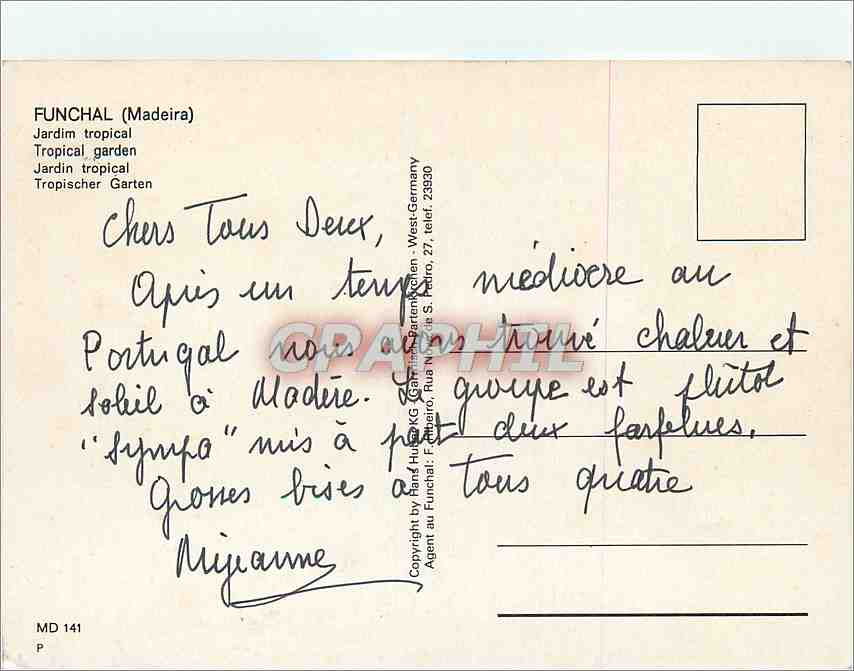 FUNCHAL (Madeira)
Jardim tropical
Tropical garden
Jardin tropical
Tropischer Garten
Chers Tous Deux,
Après un temps médiocre au
Portugal nous avons trouvé chaleur et
soleil à Madère. Le groupe est plutôt
"sympa" mis à part deux farfelues.
Grosses bises à tous quatre
Mijeanne
Copyright by Hans Huber KG Garmisch-Partenkirchen - West-Germany
Agent au Funchal: F. Ribeiro, Rua Nova de S. Pedro, 27, telef. 23930
GRAPHIL
MD 141
P